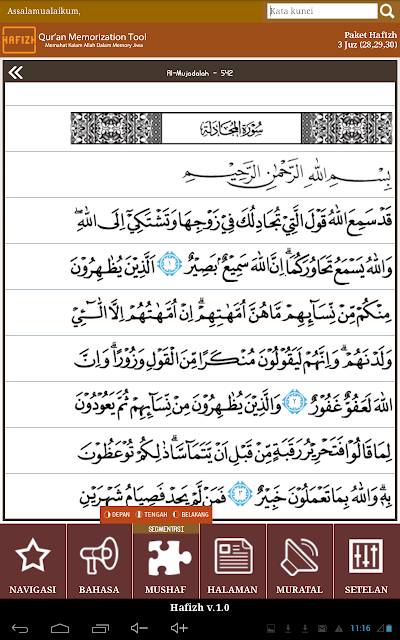 Assalamualaikum,
Kata kunci
HAFIZH
Qur'an Memorization Tool
Memahat Kalam Allah Dalam Memory Jiwa
Paket Hafizh
3 Juz (28,29,30)
Al-Mujadalah - 542
سُورَةُ الْمُجَادَلَة
بِسْمِ اللهِ الرَّحْمٰنِ الرَّحِيْمِ
قَدْ سَمِعَ اللهُ قَوْلَ الَّتِيْ تُجَادِلُكَ فِيْ زَوْجِهَا وَتَشْتَكِيْٓ اِلَى اللهِ ۖ
وَاللهُ يَسْمَعُ تَحَاوُرَكُمَاۗ اِنَّ اللهَ سَمِيْعٌۢ بَصِيْرٌ ١ اَلَّذِيْنَ يُظٰهِرُوْنَ
مِنْكُمْ مِّنْ نِّسَاۤىِٕهِمْ مَّا هُنَّ اُمَّهٰتِهِمْۗ اِنْ اُمَّهٰتُهُمْ اِلَّا الّٰۤـِٔيْ
وَلَدْنَهُمْۗ وَاِنَّهُمْ لَيَقُوْلُوْنَ مُنْكَرًا مِّنَ الْقَوْلِ وَزُوْرًاۗ وَاِنَّ
اللهَ لَعَفُوٌّ غَفُوْرٌ ٢ وَالَّذِيْنَ يُظٰهِرُوْنَ مِنْ نِّسَاۤىِٕهِمْ ثُمَّ يَعُوْدُوْنَ
لِمَا قَالُوْا فَتَحْرِيْرُ رَقَبَةٍ مِّنْ قَبْلِ اَنْ يَّتَمَاۤسَّاۗ ذٰلِكُمْ تُوْعَظُوْنَ
بِهٖۗ وَاللهُ بِمَا تَعْمَلُوْنَ خَبِيْرٌ ٣ فَمَنْ لَّمْ يَجِدْ فَصِيَامُ شَهْرَيْنِ
DEPAN TENGAH BELAKANG
SEGMENTASI
NAVIGASI BAHASA MUSHAF HALAMAN MURATAL SETELAN
Hafizh v.1.0
11:16